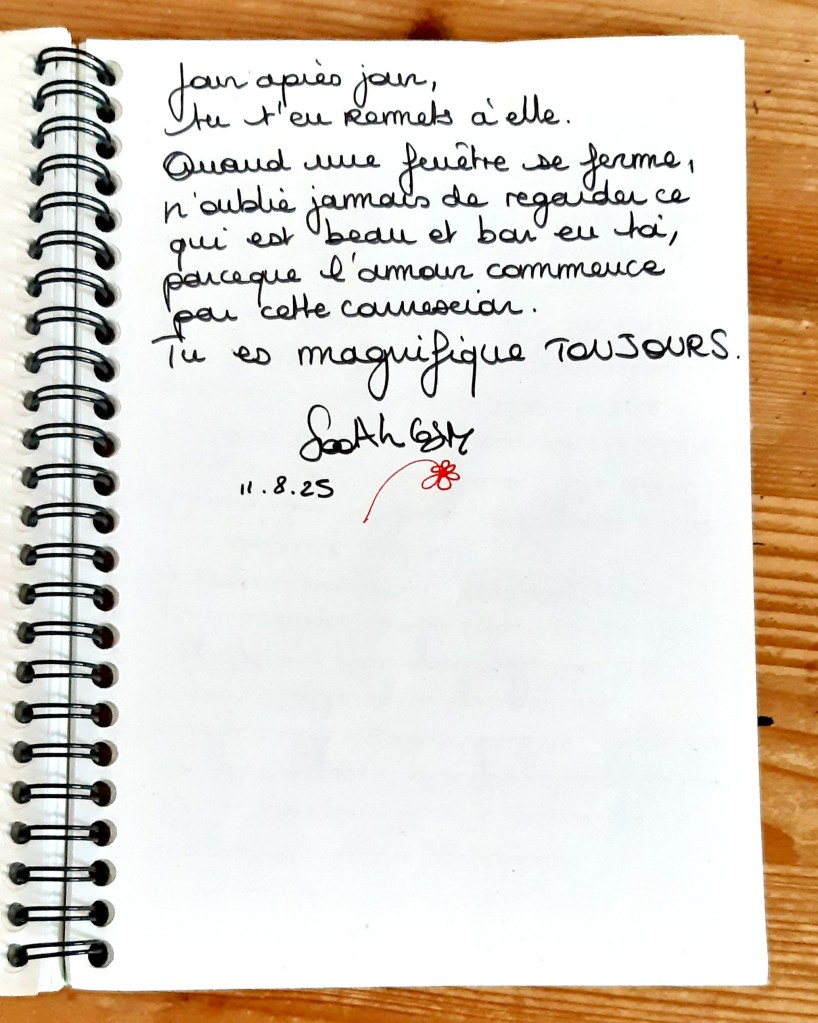 Jour après jour,
tu t'en remets à elle.
Quand une fenêtre se ferme,
n'oublie jamais de regarder ce
qui est beau et bon en toi,
parceque l'amour commence
par cette connexion.
Tu es magnifique TOUJOURS.
11.8.25